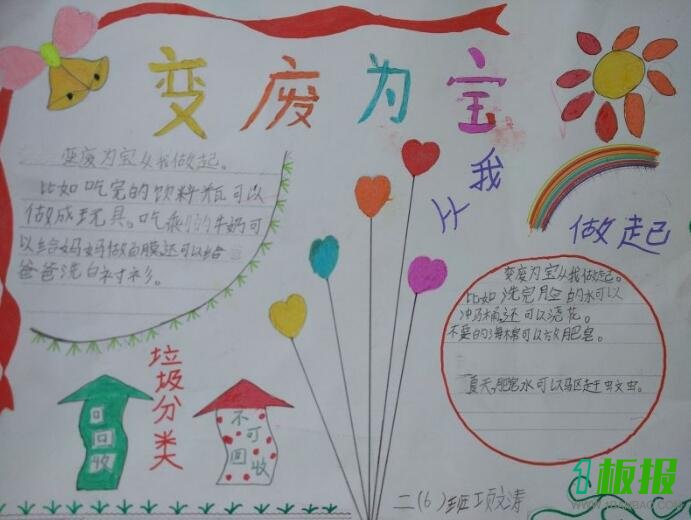 变废为宝
从我
做起
变废为宝从我做起。
比如吃完的饮料瓶可以
做成玩具。吃剩的牛奶可
以给妈妈做面膜,还可以给
爸爸洗白衬衫。
变废为宝从我做起。
比如洗完脸的水可以
冲马桶,还可以浇花。
不要的海棉可以放肥皂。
夏天,肥皂水可以驱赶蚊虫。
垃圾分类
可回收
不可回收
二(6)班项文涛
板报